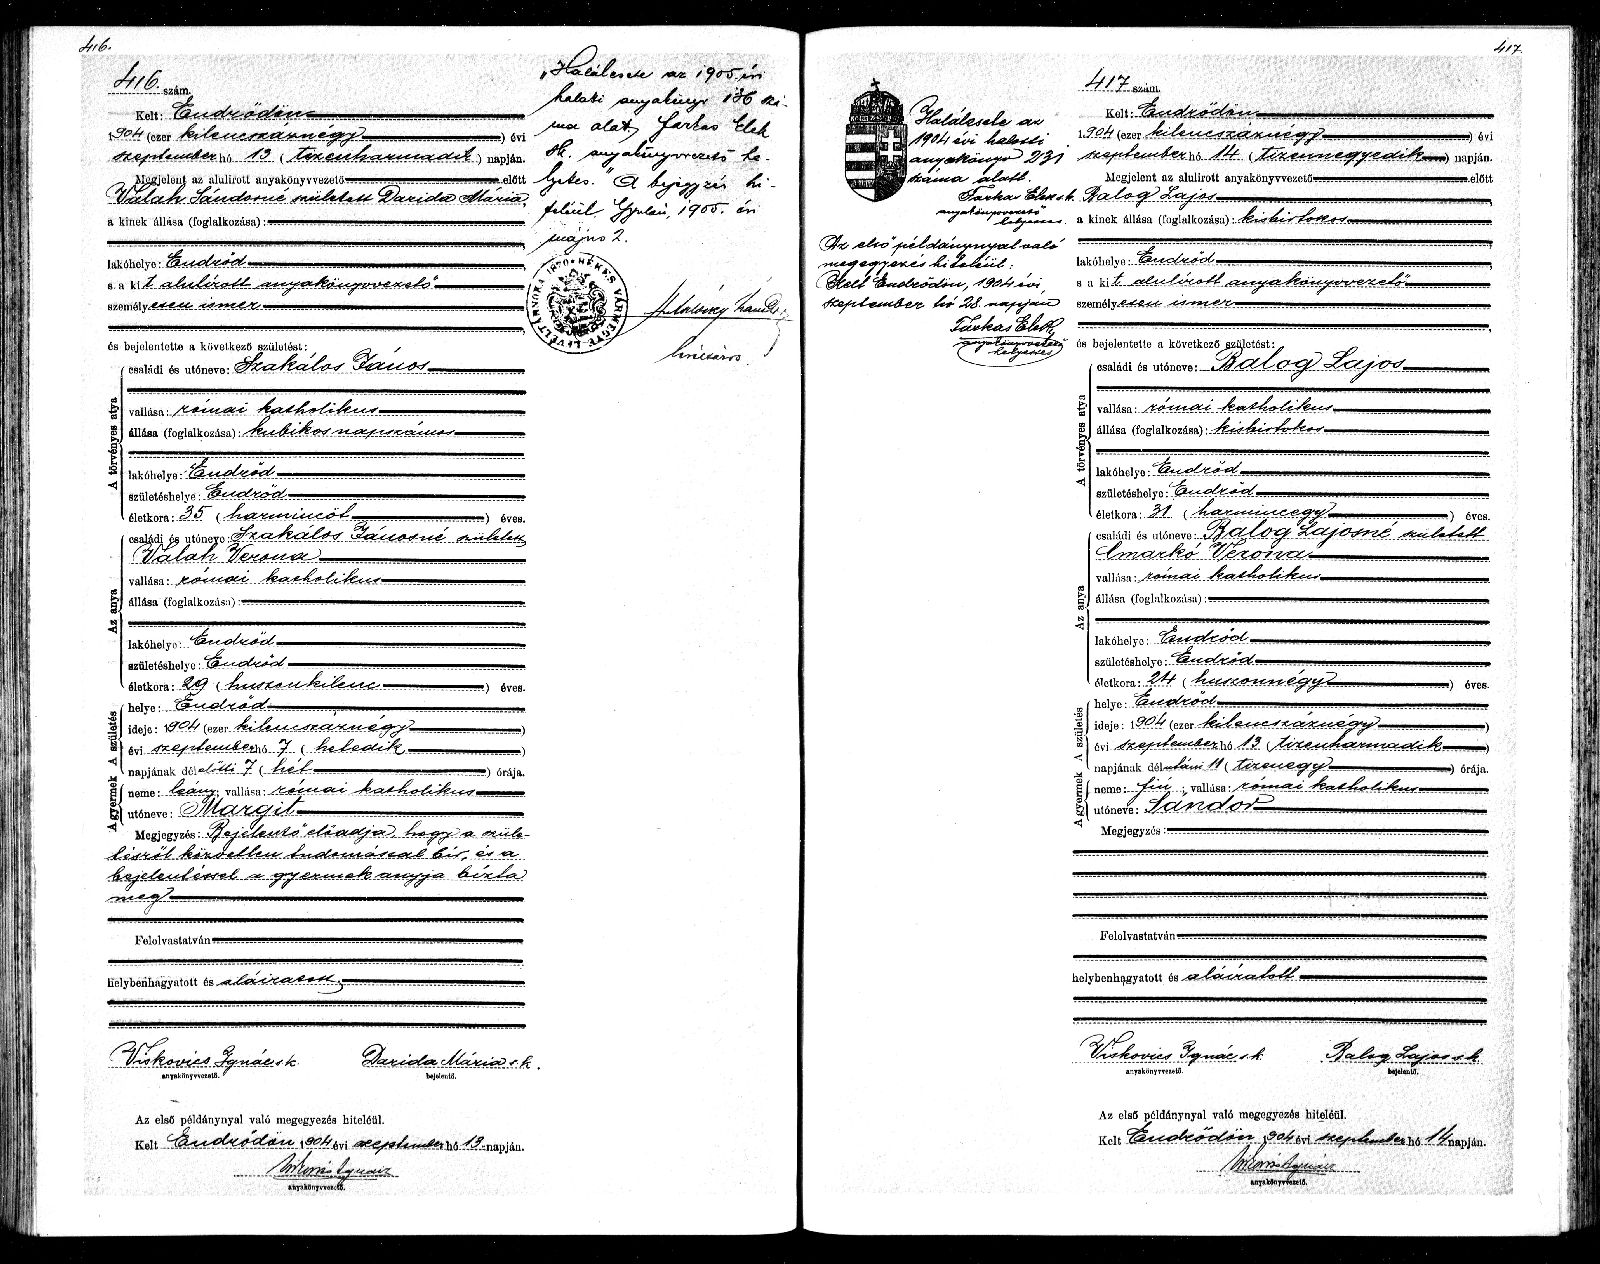 416.
416. szám.
Kelt: Endrődön
1904 (ezer kilencszáznégy) évi
szeptember hó 13 (tizenharmadik) napján.
Megjelent az alulirott anyakönyvvezető előtt
Valah Sándorné született Darida Mária,
a kinek állása (foglalkozása):
lakóhelye: Endrőd
s a kit alulírott anyakönyvvezető
személyesen ismer
és bejelentette a következő születést:
A törvényes atya
családi és utóneve: Szakálos János
vallása: római katholikus
állása (foglalkozása): kubikos napszámos
lakóhelye: Endrőd
születéshelye: Endrőd
életkora: 35 (harmincöt) éves.
Az anya
családi és utóneve: Szakálos Jánosné született
Valah Verona
vallása: római katholikus
állása (foglalkozása):
lakóhelye: Endrőd
születéshelye: Endrőd
életkora: 29 (huszonkilenc) éves.
A születés
helye: Endrőd
ideje: 1904 (ezer kilencszáznégy)
évi szeptember hó 7 (hetedik)
napjának délelőtti 7 (hét) órája.
A gyermek
neme: leány; vallása: római katholikus
utóneve: Margit
Megjegyzés: Bejelentő előadja, hogy a szüle-
tésről közvetlen tudomással bír, és a
bejelentéssel a gyermek anyja bízta
meg
Felolvastatván
helybenhagyatott és aláiratott
Viskovics Ignác s.k. Darida Mária s.k.
anyakönyvvezető. bejelentő.
Az első példánynyal való megegyezés hiteléül.
Kelt Endrődön, 1904 évi szeptember hó 13 napján.
Viskovics Ignác
anyakönyvvezető.
„Halálesete az 1905. évi
halotti anyakönyv 136 szá-
ma alatt, Farkas Elek
sk. anyakönyvvezető he-
lyettes." A bejegyzés hi-
teléül. Gyulán, 1905. évi
május 2.
BÉKÉS VÁRMEGYE LEVÉLTÁRNOKA
levéltáros.
417.
417 szám.
Kelt: Endrődön
1904 (ezer kilencszáznégy) évi
szeptember hó 14 (tizennegyedik) napján.
Megjelent az alulirott anyakönyvvezető előtt
Balog Lajos
a kinek állása (foglalkozása): kisbirtokos
lakóhelye: Endrőd
s a kit alulírott anyakönyvvezető
személyesen ismer
és bejelentette a következő születést:
A törvényes atya
családi és utóneve: Balog Lajos
vallása: római katholikus
állása (foglalkozása): kisbirtokos
lakóhelye: Endrőd
születéshelye: Endrőd
életkora: 31 (harmincegy) éves.
Az anya
családi és utóneve: Balog Lajosné született
Cmarkó Verona
vallása: római katholikus
állása (foglalkozása):
lakóhelye: Endrőd
születéshelye: Endrőd
életkora: 24 (huszonnégy) éves.
A születés
helye: Endrőd
ideje: 1904 (ezer kilencszáznégy)
évi szeptember hó 13 (tizenharmadik)
napjának délutáni 11 (tizenegy) órája.
A gyermek
neme: fiú; vallása: római katholikus
utóneve: Sándor
Megjegyzés:
Felolvastatván
helybenhagyatott és aláiratott
Viskovics Ignác s.k. Balog Lajos s.k.
anyakönyvvezető. bejelentő.
Az első példánynyal való megegyezés hiteléül.
Kelt Endrődön, 1904 évi szeptember hó 14 napján.
Viskovics Ignác
anyakönyvvezető.
Halálesete az
1904 évi halotti
anyakönyv 231
száma alatt.
Farkas Elek s.k.
anyakönyvvezető
helyettes.
Az első példánynyal való
megegyezés hiteléül:
Kelt Endrődön, 1904 évi
szeptember hó 28. napján
Farkas Elek
anyakönyvvezető
helyettes